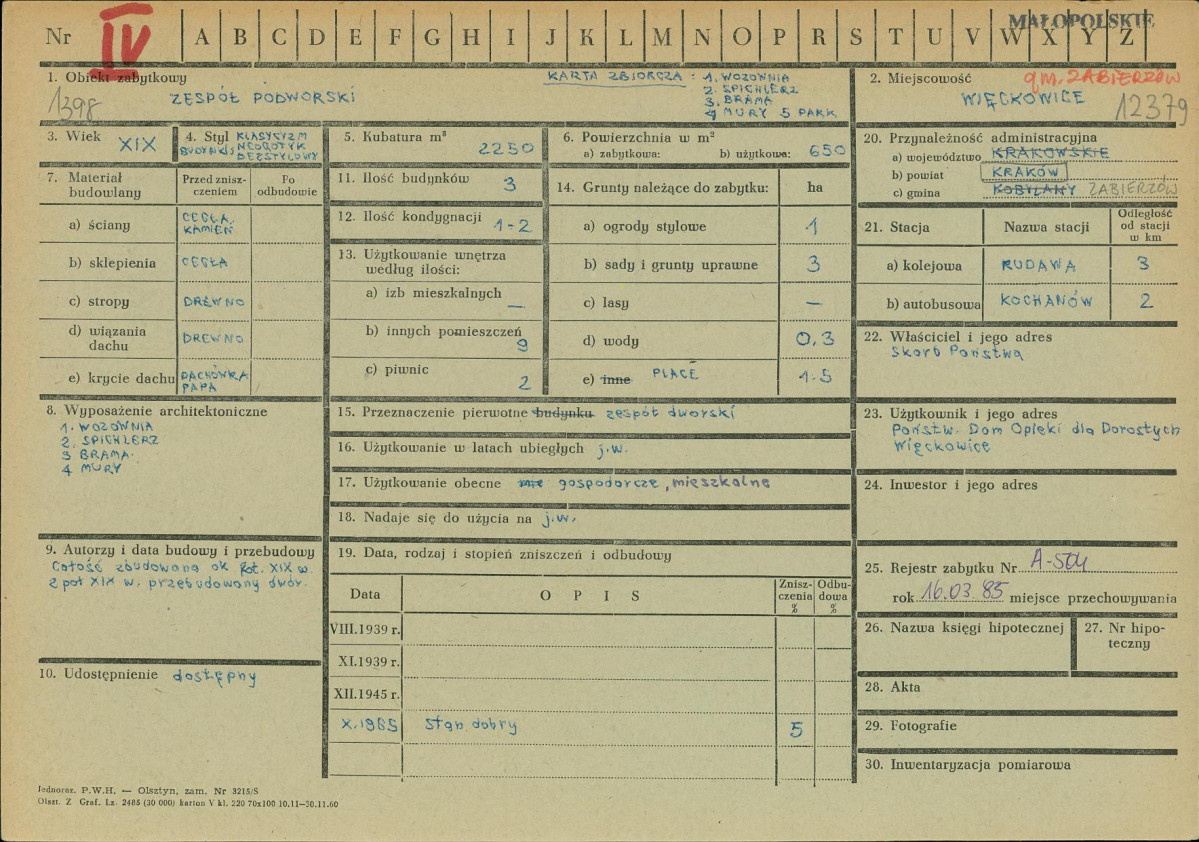 MAŁOPOLSKIE
Nr IV A B C D E F G H I J K L M N O P R S T U V W X Y Z
1. Obiekt zabytkowy
1398
ZESPÓŁ PODWORSKI
KARTA ZBIORCZA : 1. WOZOWNIA
2. SPICHLERZ
3. BRAMA
4 MURY 5 PARK
2. Miejscowość
gm. ZABIERZÓW
WIĘCKOWICE
12379
3. Wiek XIX
4. Styl KLASYCYZM
BUDYNKIS NEOGOTYK
BEZSTYLOWY
5. Kubatura m³
2250
6. Powierzchnia w m²
a) zabytkowa: b) użytkowa: 650
7. Materiał budowlany
Przed zniszczeniem
Po odbudowie
a) ściany CEGŁA, KAMIEŃ
b) sklepienia CEGŁA
c) stropy DREWNO
d) wiązania dachu DREWNO
e) krycie dachu DACHÓWKA PAPA
8. Wyposażenie architektoniczne
1. WOZOWNIA
2. SPICHLERZ
3 BRAMA
4 MURY
9. Autorzy i data budowy i przebudowy
Całość zbudowana ok poł. XIX w.
2 poł XIX w. przebudowany dwór.
10. Udostępnienie dostępny
11. Ilość budynków 3
12. Ilość kondygnacji 1-2
13. Użytkowanie wnętrza według ilości:
a) izb mieszkalnych —
b) innych pomieszczeń 9
c) piwnic 2
14. Grunty należące do zabytku: ha
a) ogrody stylowe 1
b) sady i grunty uprawne 3
c) lasy —
d) wody 0,3
e) inne PLACE 1.5
15. Przeznaczenie pierwotne budynku zespół dworski
16. Użytkowanie w latach ubiegłych j.w.
17. Użytkowanie obecne nie gospodarcze, mieszkalne
18. Nadaje się do użycia na j.w.
19. Data, rodzaj i stopień zniszczeń i odbudowy
Data
O P I S
Zniszczenia %
Odbudowa %
VIII.1939 r.
XI.1939 r.
XII.1945 r.
X.1965 Stan dobry 5
20. Przynależność administracyjna
a) województwo KRAKOWSKIE
b) powiat KRAKÓW
c) gmina KOBYLANY ZABIERZÓW
21. Stacja
Nazwa stacji
Odległość od stacji w km
a) kolejowa RUDAWA 3
b) autobusowa KOCHANÓW 2
22. Właściciel i jego adres
Skarb Państwa
23. Użytkownik i jego adres
Państw. Dom Opieki dla Dorosłych
Więckowice
24. Inwestor i jego adres
25. Rejestr zabytku Nr A-504
rok 16.03.85 miejsce przechowywania
26. Nazwa księgi hipotecznej
27. Nr hipoteczny
28. Akta
29. Fotografie
30. Inwentaryzacja pomiarowa
Jednoraz. P.W.H. — Olsztyn, zam. Nr 3215/S
Olszt. Z Graf. Lz. 2485 (30 000) karton V kl. 220 70x100 10.11—30.11.60